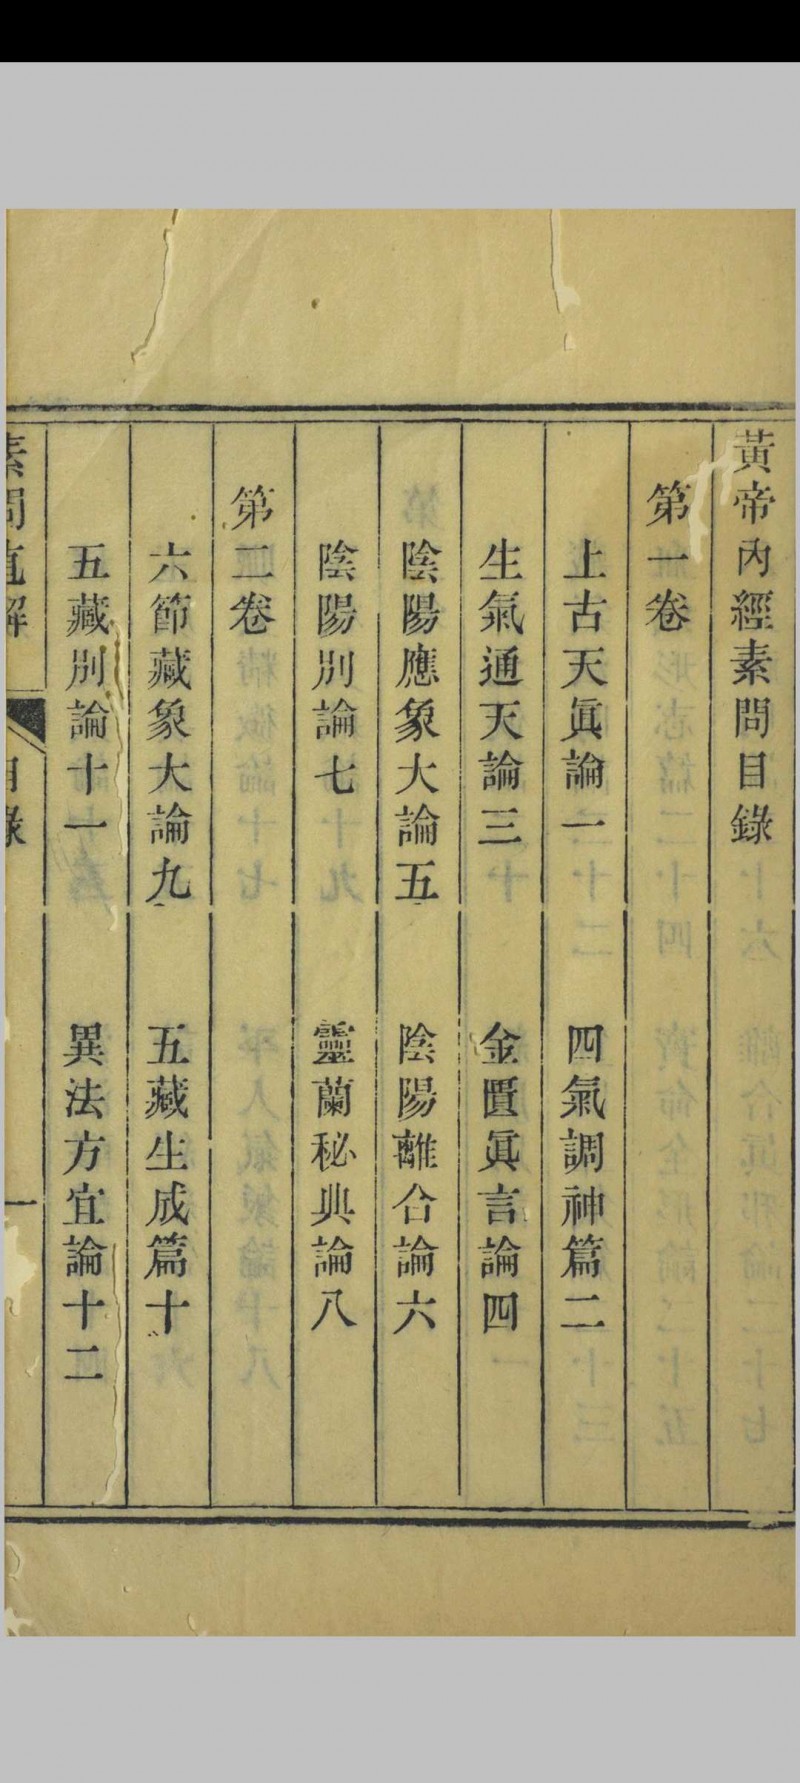 黃帝內經素問目錄
第一卷
上古天眞論一　四氣調神篇二
生氣通天論三　金匱眞言論四
陰陽應象大論五　陰陽離合論六
陰陽別論七　靈蘭秘典論八
第二卷
六節藏象大論九　五藏生成篇十
五藏別論十一　異法方宜論十二
素問直解　目錄　一